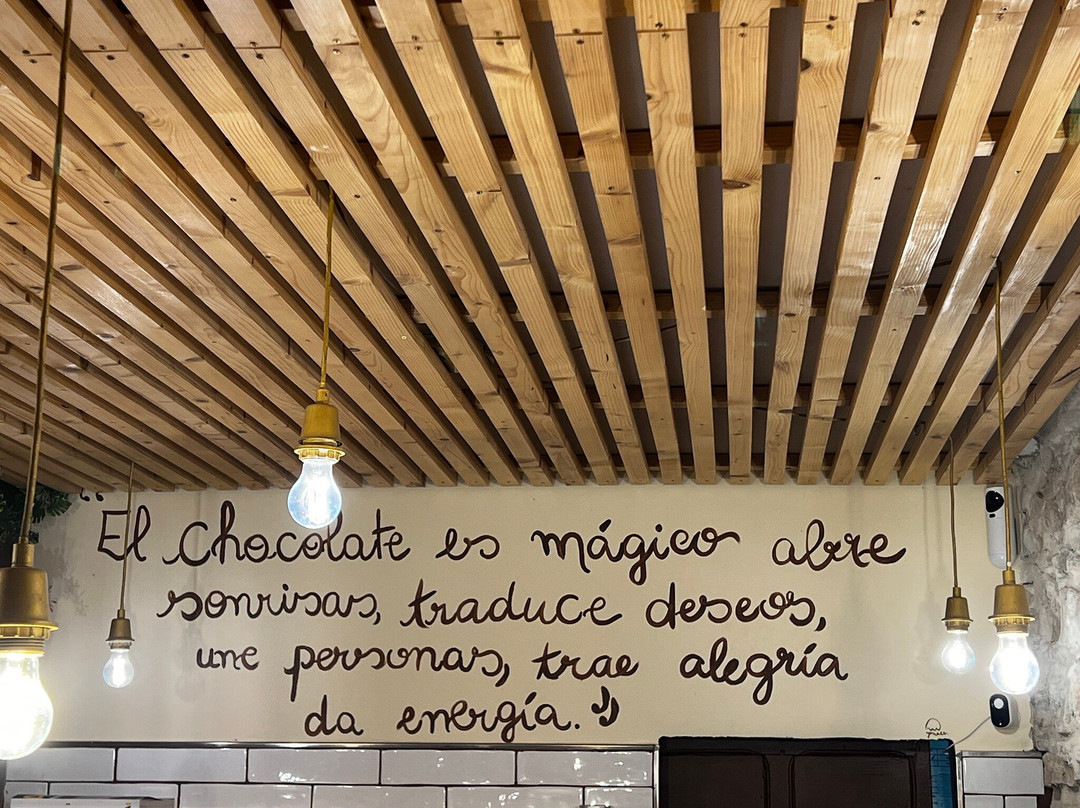 “El chocolate es mágico abre
sonrisas, traduce deseos,
une personas, trae alegría
da energía.”